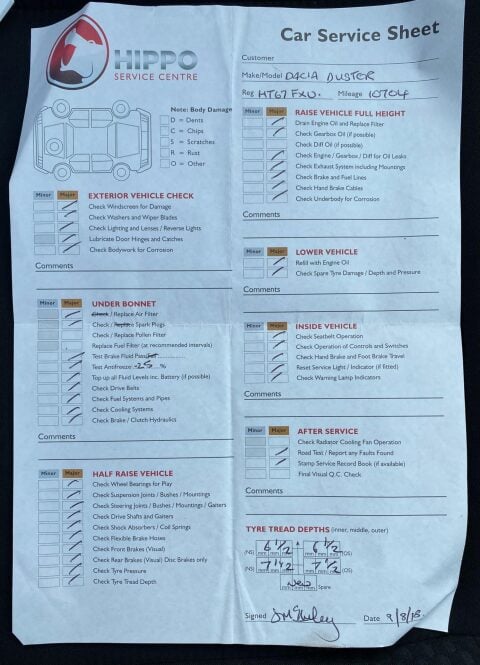 HIPPO
SERVICE CENTRE
Car Service Sheet
Customer
Make/Model DACIA DUSTER
Reg HT67 FXU. Mileage 10704
Note: Body Damage
D = Dents
C = Chips
S = Scratches
R = Rust
O = Other
Minor Major EXTERIOR VEHICLE CHECK
Check Windscreen for Damage
Check Washers and Wiper Blades
Check Lighting and Lenses / Reverse Lights
Lubricate Door Hinges and Catches
Check Bodywork for Corrosion
Comments
Minor Major UNDER BONNET
Check / Replace Air Filter
Check / Replace Spark Plugs
Check / Replace Pollen Filter
Replace Fuel Filter (at recommended intervals)
Test Brake Fluid Pass/Fail
Test Antifreeze -25 %
Top up all Fluid Levels inc. Battery (if possible)
Check Drive Belts
Check Fuel Systems and Pipes
Check Cooling Systems
Check Brake / Clutch Hydraulics
Comments
Minor Major HALF RAISE VEHICLE
Check Wheel Bearings for Play
Check Suspension Joints / Bushes / Mountings
Check Steering Joints / Bushes / Mountings / Gaiters
Check Drive Shafts and Gaiters
Check Shock Absorbers / Coil Springs
Check Flexible Brake Hoses
Check Front Brakes (Visual)
Check Rear Brakes (Visual) Disc Brakes only
Check Tyre Pressure
Check Tyre Tread Depth
Minor Major RAISE VEHICLE FULL HEIGHT
Drain Engine Oil and Replace Filter
Check Gearbox Oil (if possible)
Check Diff Oil (if possible)
Check Engine / Gearbox / Diff for Oil Leaks
Check Exhaust System including Mountings
Check Brake and Fuel Lines
Check Hand Brake Cables
Check Underbody for Corrosion
Comments
Minor Major LOWER VEHICLE
Refill with Engine Oil
Check Spare Tyre Damage / Depth and Pressure
Comments
Minor Major INSIDE VEHICLE
Check Seatbelt Operation
Check Operation of Controls and Switches
Check Hand Brake and Foot Brake Travel
Reset Service Light / Indicator (if fitted)
Check Warning Lamp Indicators
Comments
Minor Major AFTER SERVICE
Check Radiator Cooling Fan Operation
Road Test / Report any Faults Found
Stamp Service Record Book (if available)
Final Visual Q.C. Check
Comments
TYRE TREAD DEPTHS (inner, middle, outer)
(NS) 6 1/2 mm mm mm 6 1/2 mm mm mm (OS)
(NS) 7 1/2 mm mm mm 7 1/2 mm mm mm (OS)
New mm mm mm Spare
Signed Date 9/8/18.